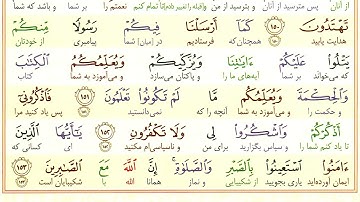 از آنان پس مترسید از آنان و بترسید از من و تا تمام کنم نعمتم را بر شما و باشد که شما
تَهْتَدُونَ ١٥٠ كَمَآ أَرْسَلْنَا فِيكُمْ رَسُولًا مِّنكُمْ
هدایت یابید همچنان‌که فرستادیم در [میان] شما پیامبری از خودتان
يَتْلُوا۟ عَلَيْكُمْ ءَايَـٰتِنَا وَيُزَكِّيكُمْ وَيُعَلِّمُكُمُ ٱلْكِتَـٰبَ
که می‌خواند بر شما آیه‌های ما را و پاکتان می‌سازد و می‌آموزد به شما کتاب
وَٱلْحِكْمَةَ وَيُعَلِّمُكُم مَّا لَمْ تَكُونُوا۟ تَعْلَمُونَ ١٥١ فَٱذْكُرُونِىٓ
و حکمت را و می‌آموزد به شما آنچه را که نمی‌دانستید پس یاد کنید مرا
أَذْكُرْكُمْ وَٱشْكُرُوا۟ لِى وَلَا تَكْفُرُونِ ١٥٢ يَـٰٓأَيُّهَا ٱلَّذِينَ
تا یاد کنم شما را و سپاس بگزارید برای من و ناسپاسی‌ام مکنید ای کسانی که
ءَامَنُوا۟ ٱسْتَعِينُوا۟ بِٱلصَّبْرِ وَٱلصَّلَوٰةِ ۚ إِنَّ ٱللَّهَ مَعَ ٱلصَّـٰبِرِينَ ١٥٣
ایمان آورده‌اید یاری بجویید از شکیبایی و نماز همانا الله با شکیبایان است